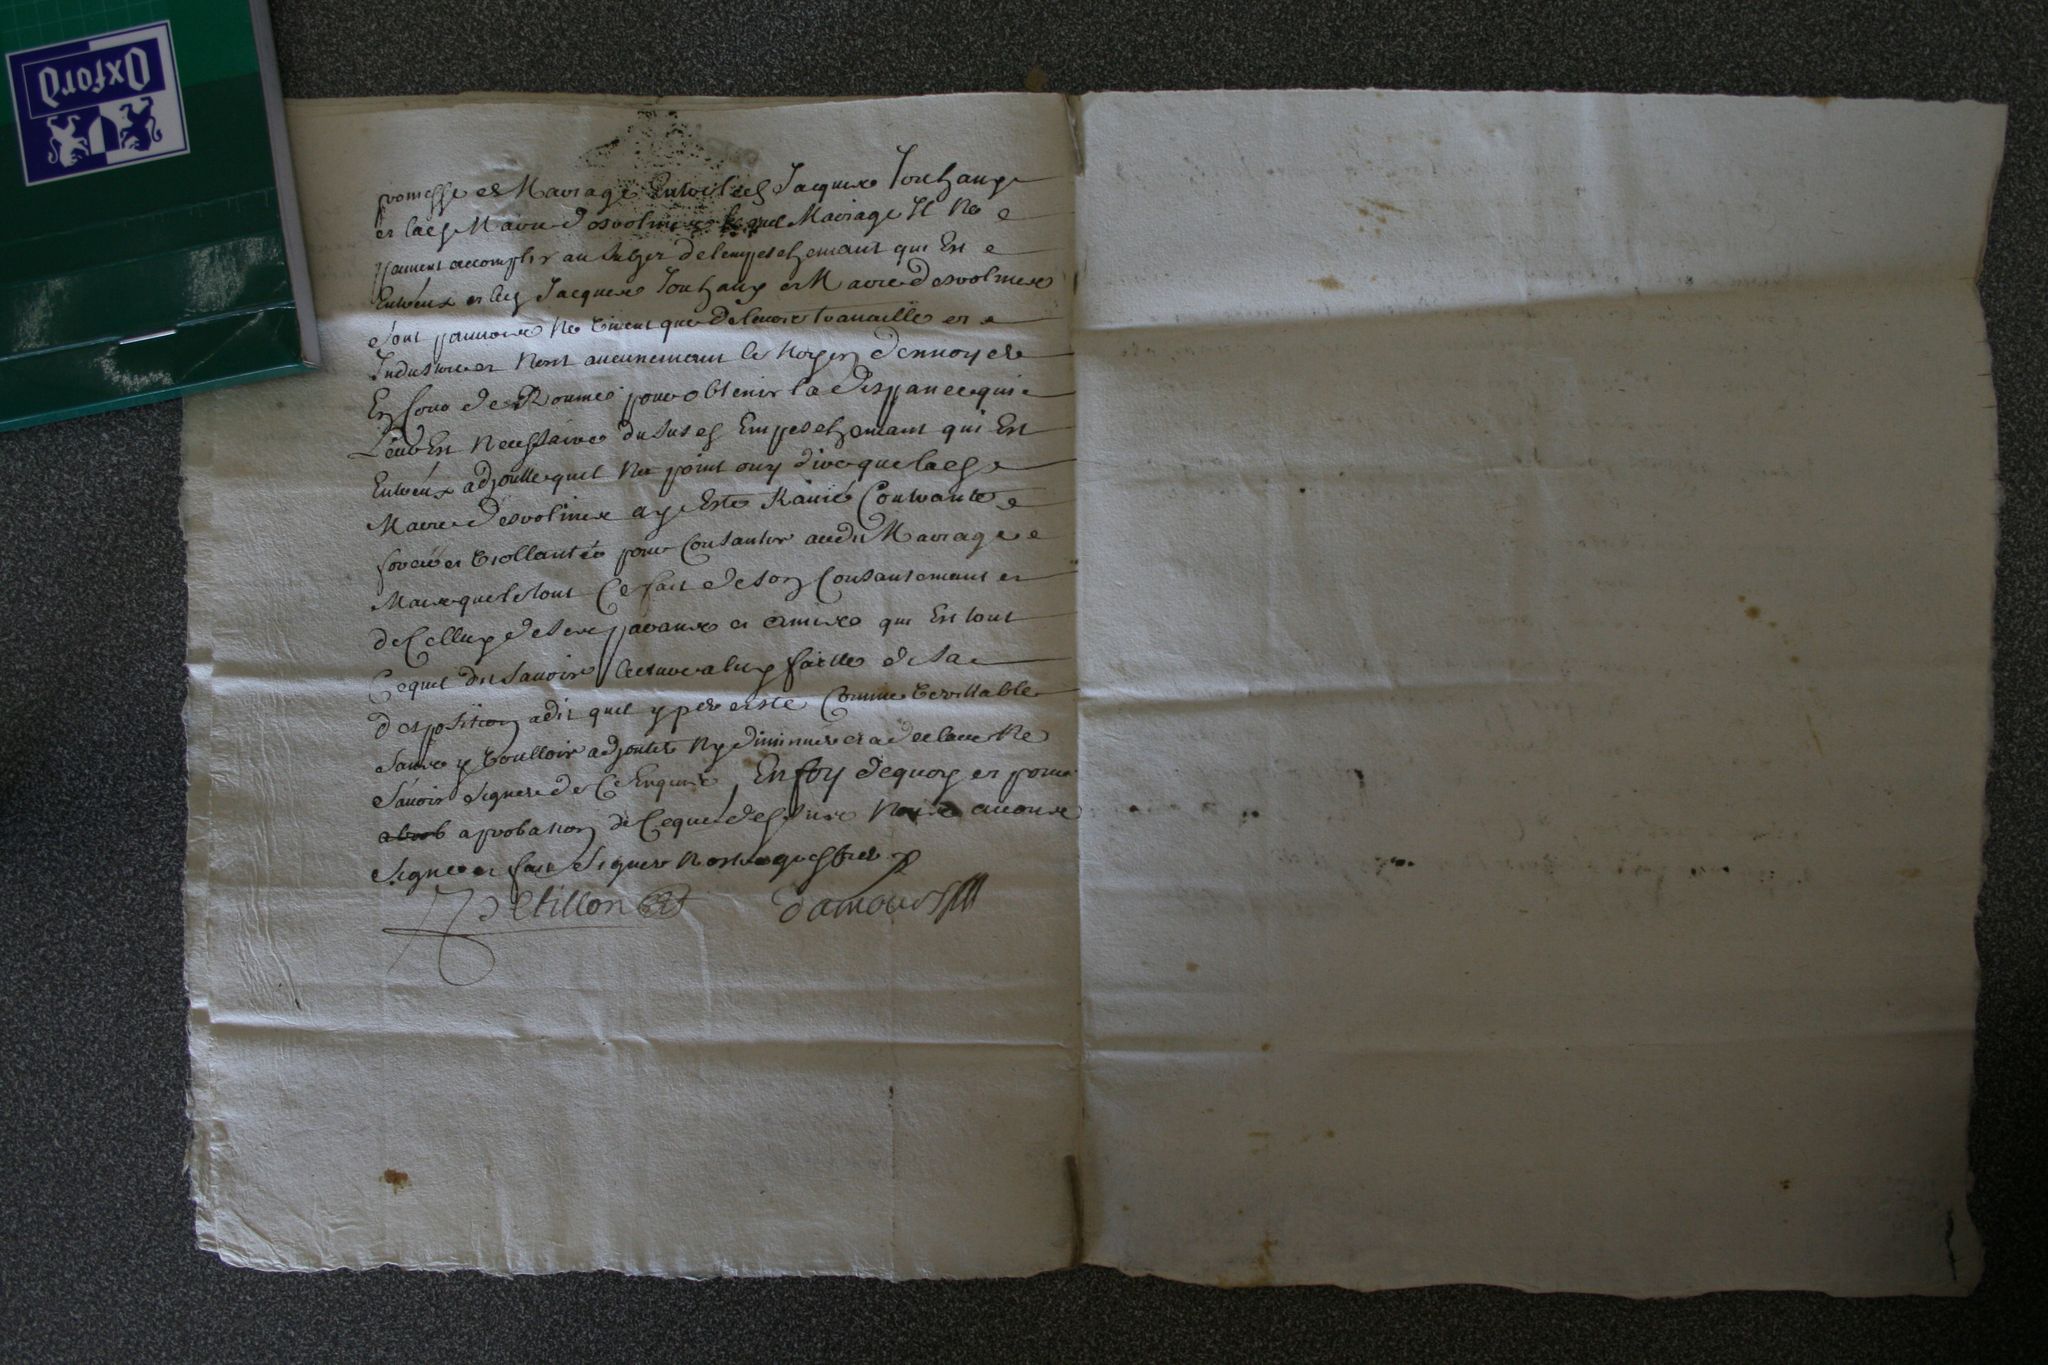 Oxford
promesse de Mariage Entre led Jacques Touhaux
et lad Marie Desvoline lequel Mariage Il Ne
peuvent accomplir au subjet de lempeschemant qui Est
Entreux et led Jacques Touhaux et Marie Desvoline
sont pauvre Ne vivent que de leure travaille et
Industrie et Nont aucunemant le Moyen denvoyer
En Cour de Roume pour obtenir la dispance qui
Leur Est Necessaire du susd Empeschemant qui Est
Entreux adjoutte quil Na point ouy dire que lad
Marie Desvoline aye Este Ravie Contrante
forcée et viollantée pour Consantir audit Mariage
Mais que le tout Ce fait de son Consantemant et
de Celluy de ses parans et amis qui Est tout
Ce quil dit savoir lecture a luy faitte de sa
desposition a dit quil y perciste Comme veritable
sans y voulloir adjouter Ny diminuer et a declare Ne
savoir signer de Ce Enquis, En foy dequoy et pour
aprobation de Ce que dessus Nous avons
signé et fait signer Nostre greffier
Petillon
damours